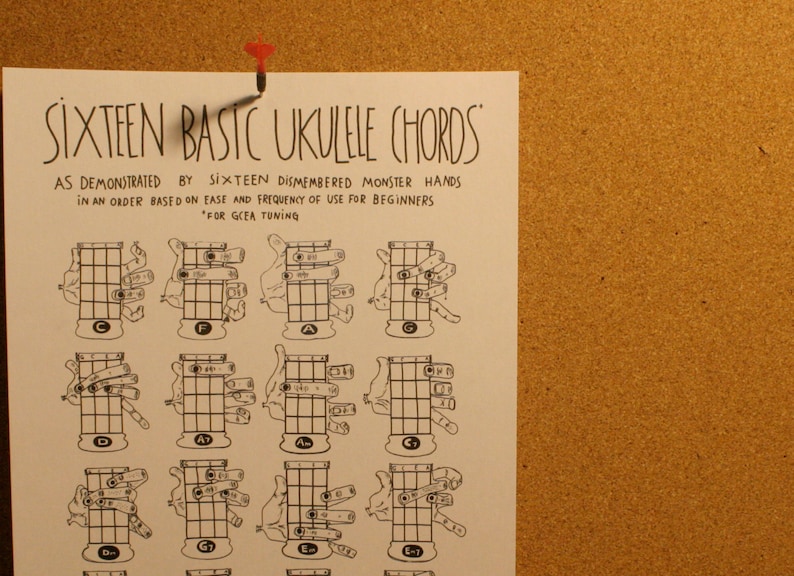 SIXTEEN BASIC UKULELE CHORDS*
AS DEMONSTRATED BY SIXTEEN DISMEMBERED MONSTER HANDS
IN AN ORDER BASED ON EASE AND FREQUENCY OF USE FOR BEGINNERS
*FOR GCEA TUNING
C F A G
G C E A
D A7 Am C7
G C E A
Dm G7 Em Em7